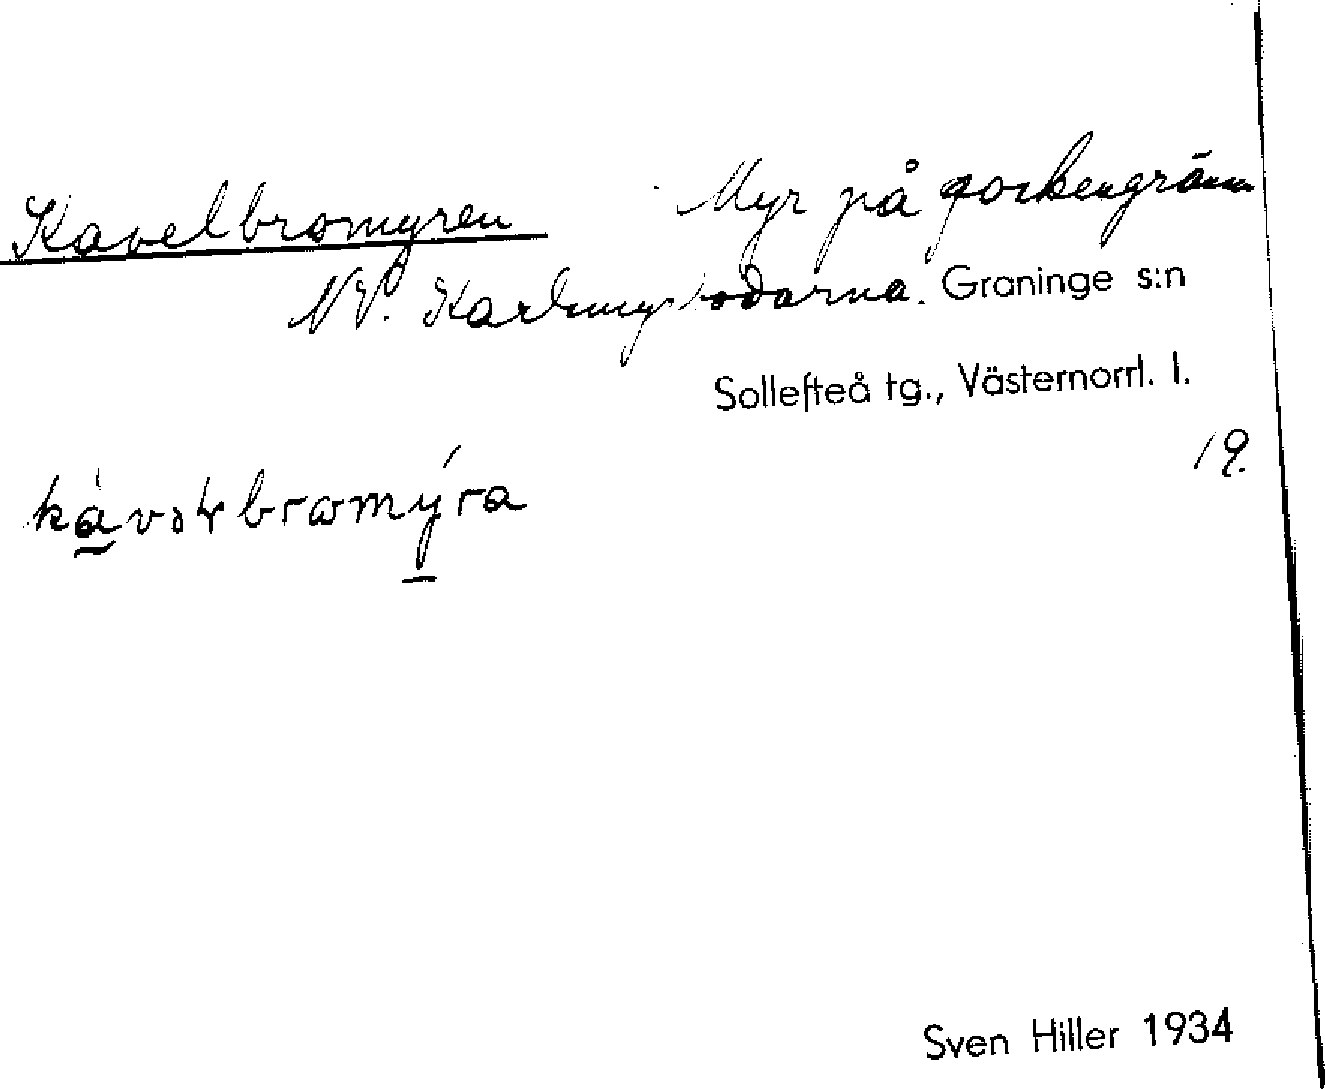 Kavelbromyren Myr på sockengränn
NV. Karlmyrbodarna. Graninge s:n
Sollefteå tg., Västernorrl. l.
19.
Sven Hiller 1934